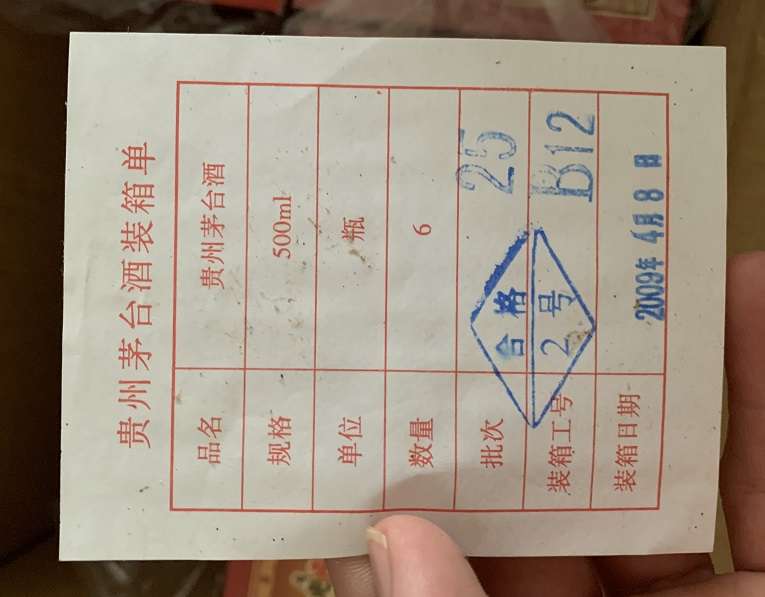 贵州茅台酒装箱单
品名 贵州茅台酒
规格 500ml
单位 瓶
数量 6
批次 25
装箱工号 B12
装箱日期 2009年4月8日
合格
2号